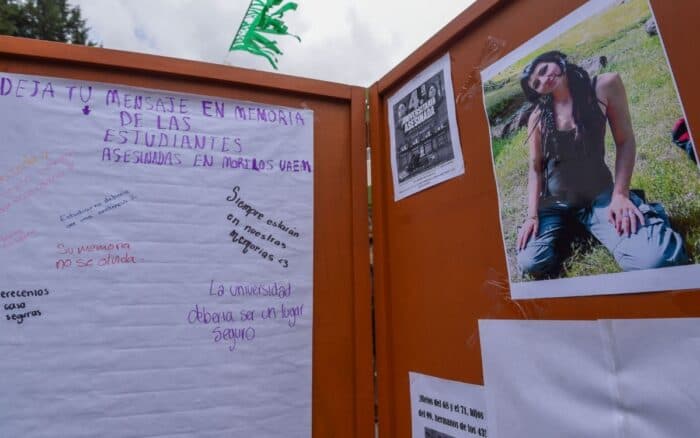 DEJA TU MENSAJE EN MEMORIA
DE LAS
ESTUDIANTES
ASESINADAS EN MORELOS UAEM
Siempre estarán
en nuestras
memorias <3
Su memoria
no se olvida.
La universidad
debería ser un lugar
seguro
casa
seguras
UNIVERSITARIA
ASESINADA
¡Nietos del 68 y el 71, hijos
del 99, hermanos de los 43!